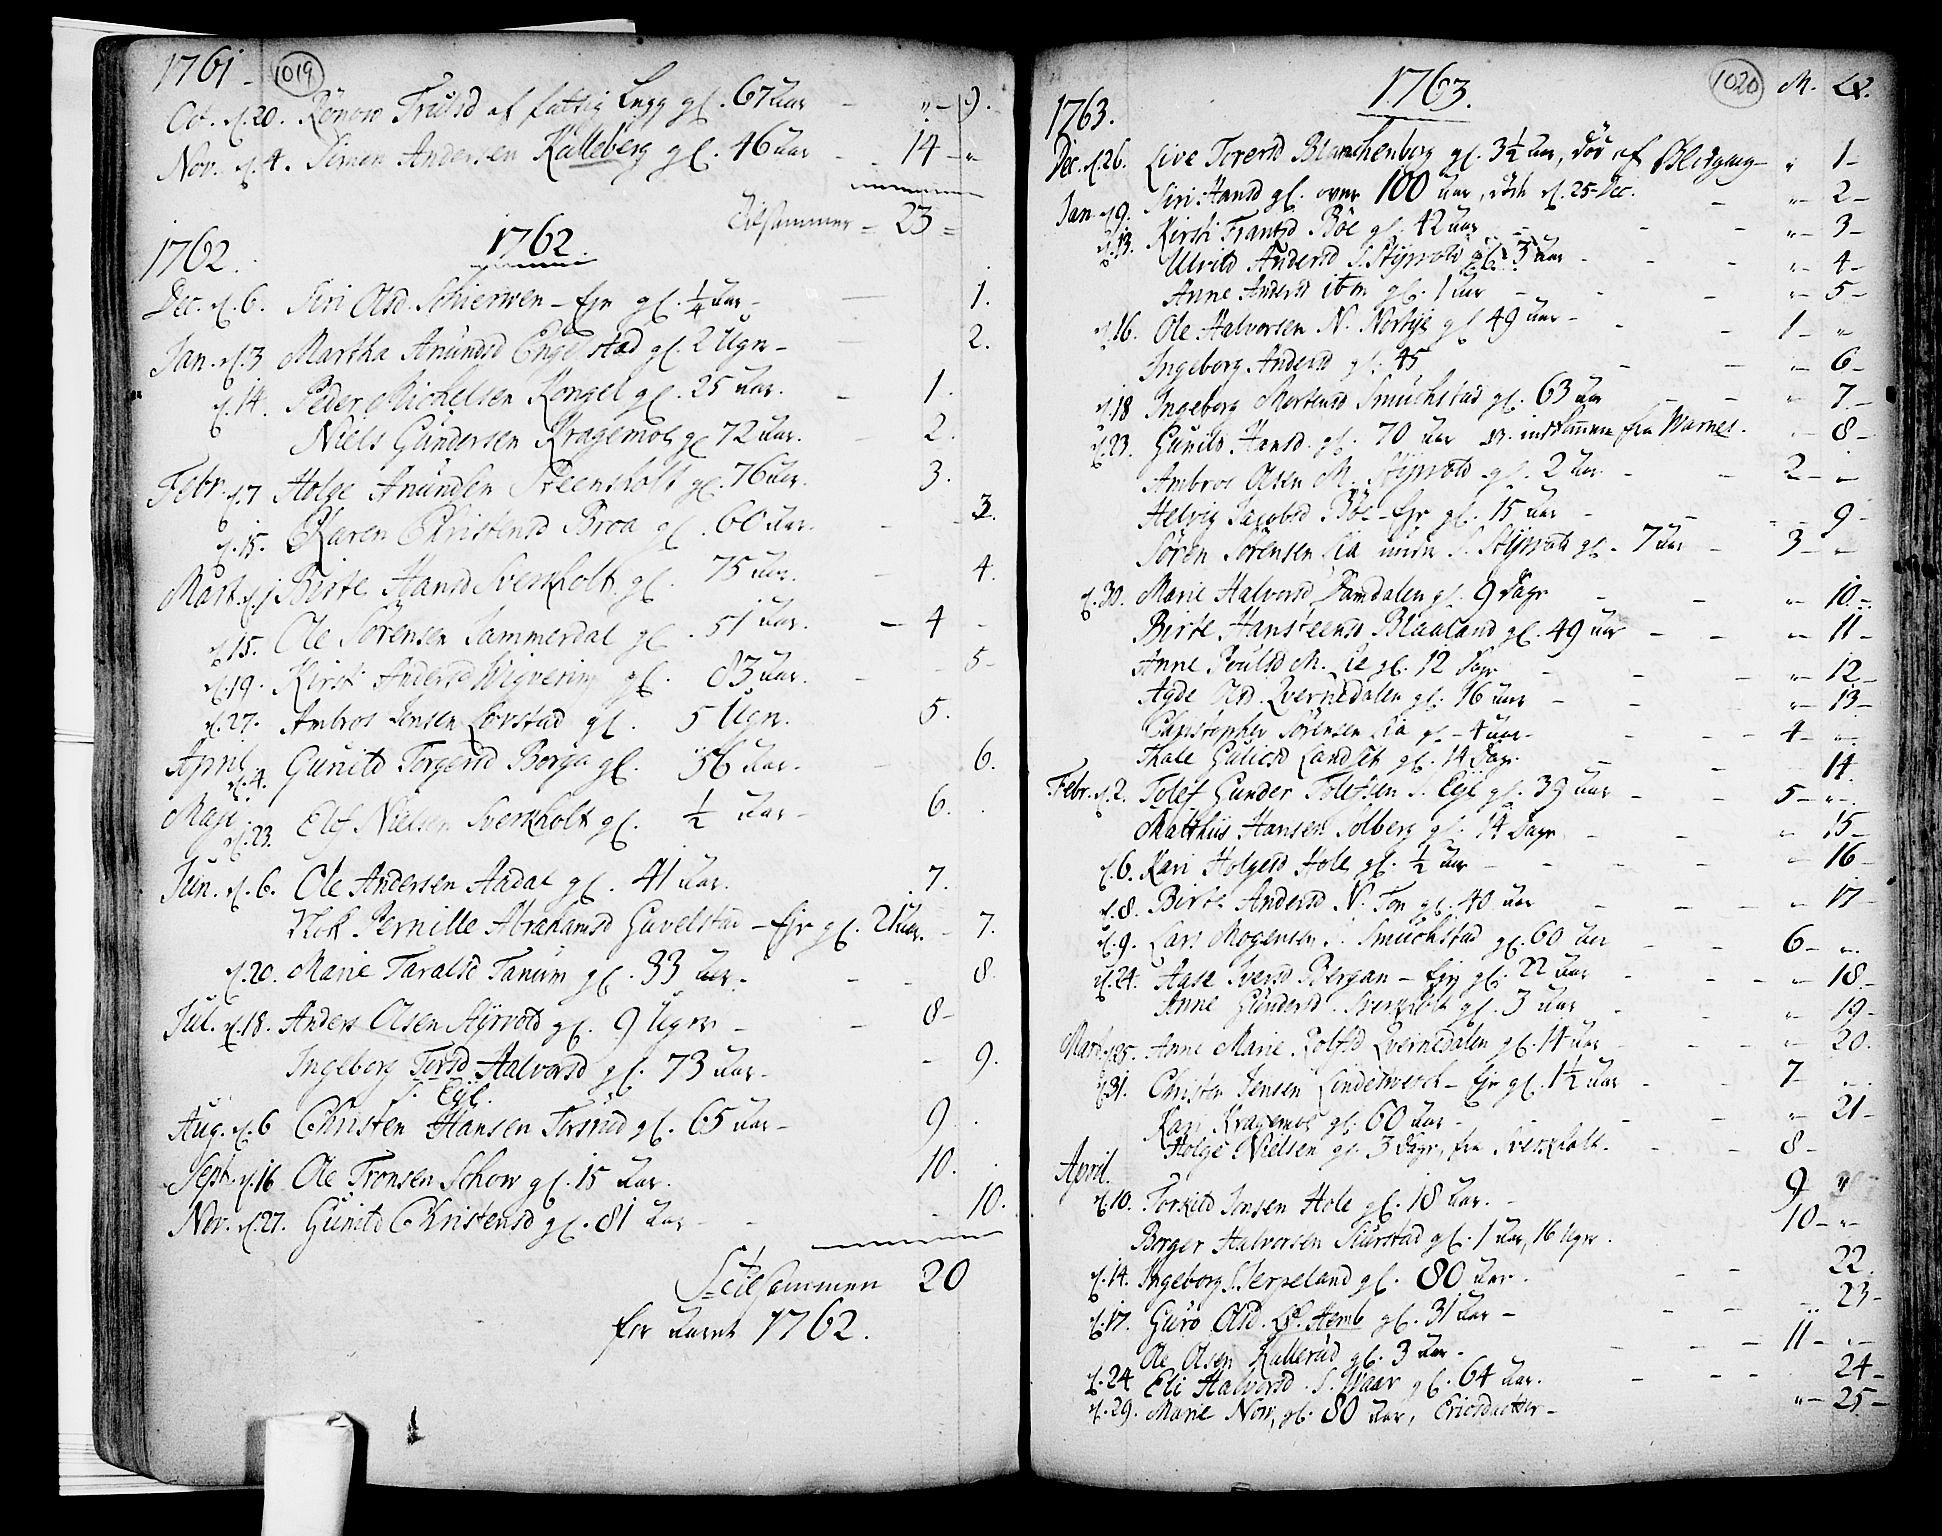 1761. 1019
Oct. d. 20. Rönow Trulsd af fattig Legg gl. 67 aar - " - 9.
Nov. d. 4. Simen Andersen Kalleberg gl. 46 aar - 14 - "
Tilsammen = 23 =
1762. 1762
Dec. d. 6. Siri Olsd. Schierwen - Eje gl. 1/4 aar - 1.
Jan. d. 3 Martha Anundsd Engelstad gl. 2 Ugr - 2.
d. 14. Peder Michelsen Kongel gl. 25 aar. - 1.
Niels Gundersen Kragemoe gl 72 aar. - 2.
Febr. d. 7 Holge Anunden Steensholt gl. 76 aar. 3.
d. 15. Karen Christensd Broa gl. 60 aar. - 3.
Mart. d. 1 Birte Hansd Sverkholt gl. 75 aar. - 4.
d. 15. Ole Sørensen Sammerdal gl. 51 aar. - 4 -
d. 19. Kirsti Andersd gl. 83 aar. - 5 -
d. 27. Ambros Jensen Lovstad gl. 5 Ugr. 5.
April d. 4. Gunild Torgersd Borge gl. 56 aar. - 6.
Maji d. 23. Elef Nielsen Sverkholt gl. 1/2 aar - 6.
Jun. d. 6. Ole Andersen Aadal gl. 41 aar. 7.
Nok Pernille Abrahamsd Guvelstad - Eje gl. 21 aar. - 7.
d. 20. Marie Taralsd Tanum gl. 33 aar. - 8.
Jul. d. 18. Anders Olsen Styrvold gl. 9 Ugr - 8 -
Ingeborg Torsd Halvorsd gl. 73 aar - 9.
S. Eye.
Aug. d. 6 Christen Hansen Torsrud gl. 65 aar - 9.
Sept. d. 16 Ole Tronsen Schow gl. 15 aar. 10.
Nov. d. 27. Gunild Christensd gl. 81 aar - 10.
Tilsammen 20
for aaret 1762.
1763. 1020 M. Qv.
1763.
Dec. d. 26. Live Toresd Blanchenborg gl. 3 1/2 aar, död af Blodgang - " 1 -
Jan d. 9. Siri Hansd gl. over 100 aar, døde d. 25 Dec. - " - 2 -
d. 13. Kirsti Frantsd Böe gl. 42 aar - " - 3 -
Ulvild Andersd S. Styrvold gl. 3 aar - " - 4 -
Anne Andersd ibm gl. 1 aar - " - 5 -
d. 16. Ole Halvorsen N. gl 49 aar - 1 - "
Ingeborg Andersd gl. 45 - " - 6 -
d. 18 Ingeborg Mortensd Smuchstad gl. 63 aar " - 7 -
d. 23. Gunild Hansd. gl. 70 aar indkommen fra Warnes. - 8 -
Ambros Olsen M. Styrvold gl. 2 aar. - 2 - "
Helvig Jacobsd Böe - Eje gl. 15 aar - " - 9 -
Søren Sørensen Lia S. Styrvold gl. - 7 aar - 3 - "
d. 30. Marie Halvorsd Damdalen gl. 9 Dage - " - 10 -
Birte Hansteensd Blaaland gl. 49 aar - " - 11 -
Anne Poulsd M. Lie gl. 12 Dage - " - 12 -
Agde Olsd. Qvernedalen gl. 16 aar - " - 13 -
Christopher Sørensen Lia gl - 4 aar - 4 - "
Thale Gulicsd Landset gl. 14 Dage. - 14.
Febr. d. 2. Tolef Gunder Tolefsen S. Eye gl. 39 aar - 5 - "
Matthiis Hansen Solberg gl. 14 Dage - " 15 -
d. 6. Kari Holgersd Hole gl. 1/2 aar - " 16 -
d. 8. Birte Andersd N. Ton gl. 40 aar - " 17 -
d. 9. Lars Mogensen S. Smuchstad gl. 60 aar - 6 - "
d. 24. Aase Iversd Bergan - Eje gl. 22 aar - " 18 -
Anne Gundersd Sverkholt gl. 3 aar - " 19 -
Mart. d. 25. Anne Marie Rolfsd Qvernedalen gl. 14 aar - " 20.
d. 31. Christen Jensen - Eje gl. 1 1/2 aar - 7 - "
Kari Kragemoe gl. 60 aar - " 21 -
Holge Nielsen gl. 3 Dage, fra Sverkholt. - 8 -
April.
d. 10. Torkild Jensen Hole gl. 18 aar. - 9 "
Borger Halvorsen Skurstad gl. 1 aar, 16 Ugr. 10 - "
d. 14. Ingeborg S. gl. 80 aar. - 22.
d. 17. Guro Olsd. L. Hemb gl. 31 aar - 23 -
Ole Olsen Kallerud gl. 3 aar - 11 - "
d. 24 Eli Halvorsd S. Waar gl. 64 aar. - 24 -
d. 29. Marie Now, gl. 80 aar, Ericsdatter - " - 25 -